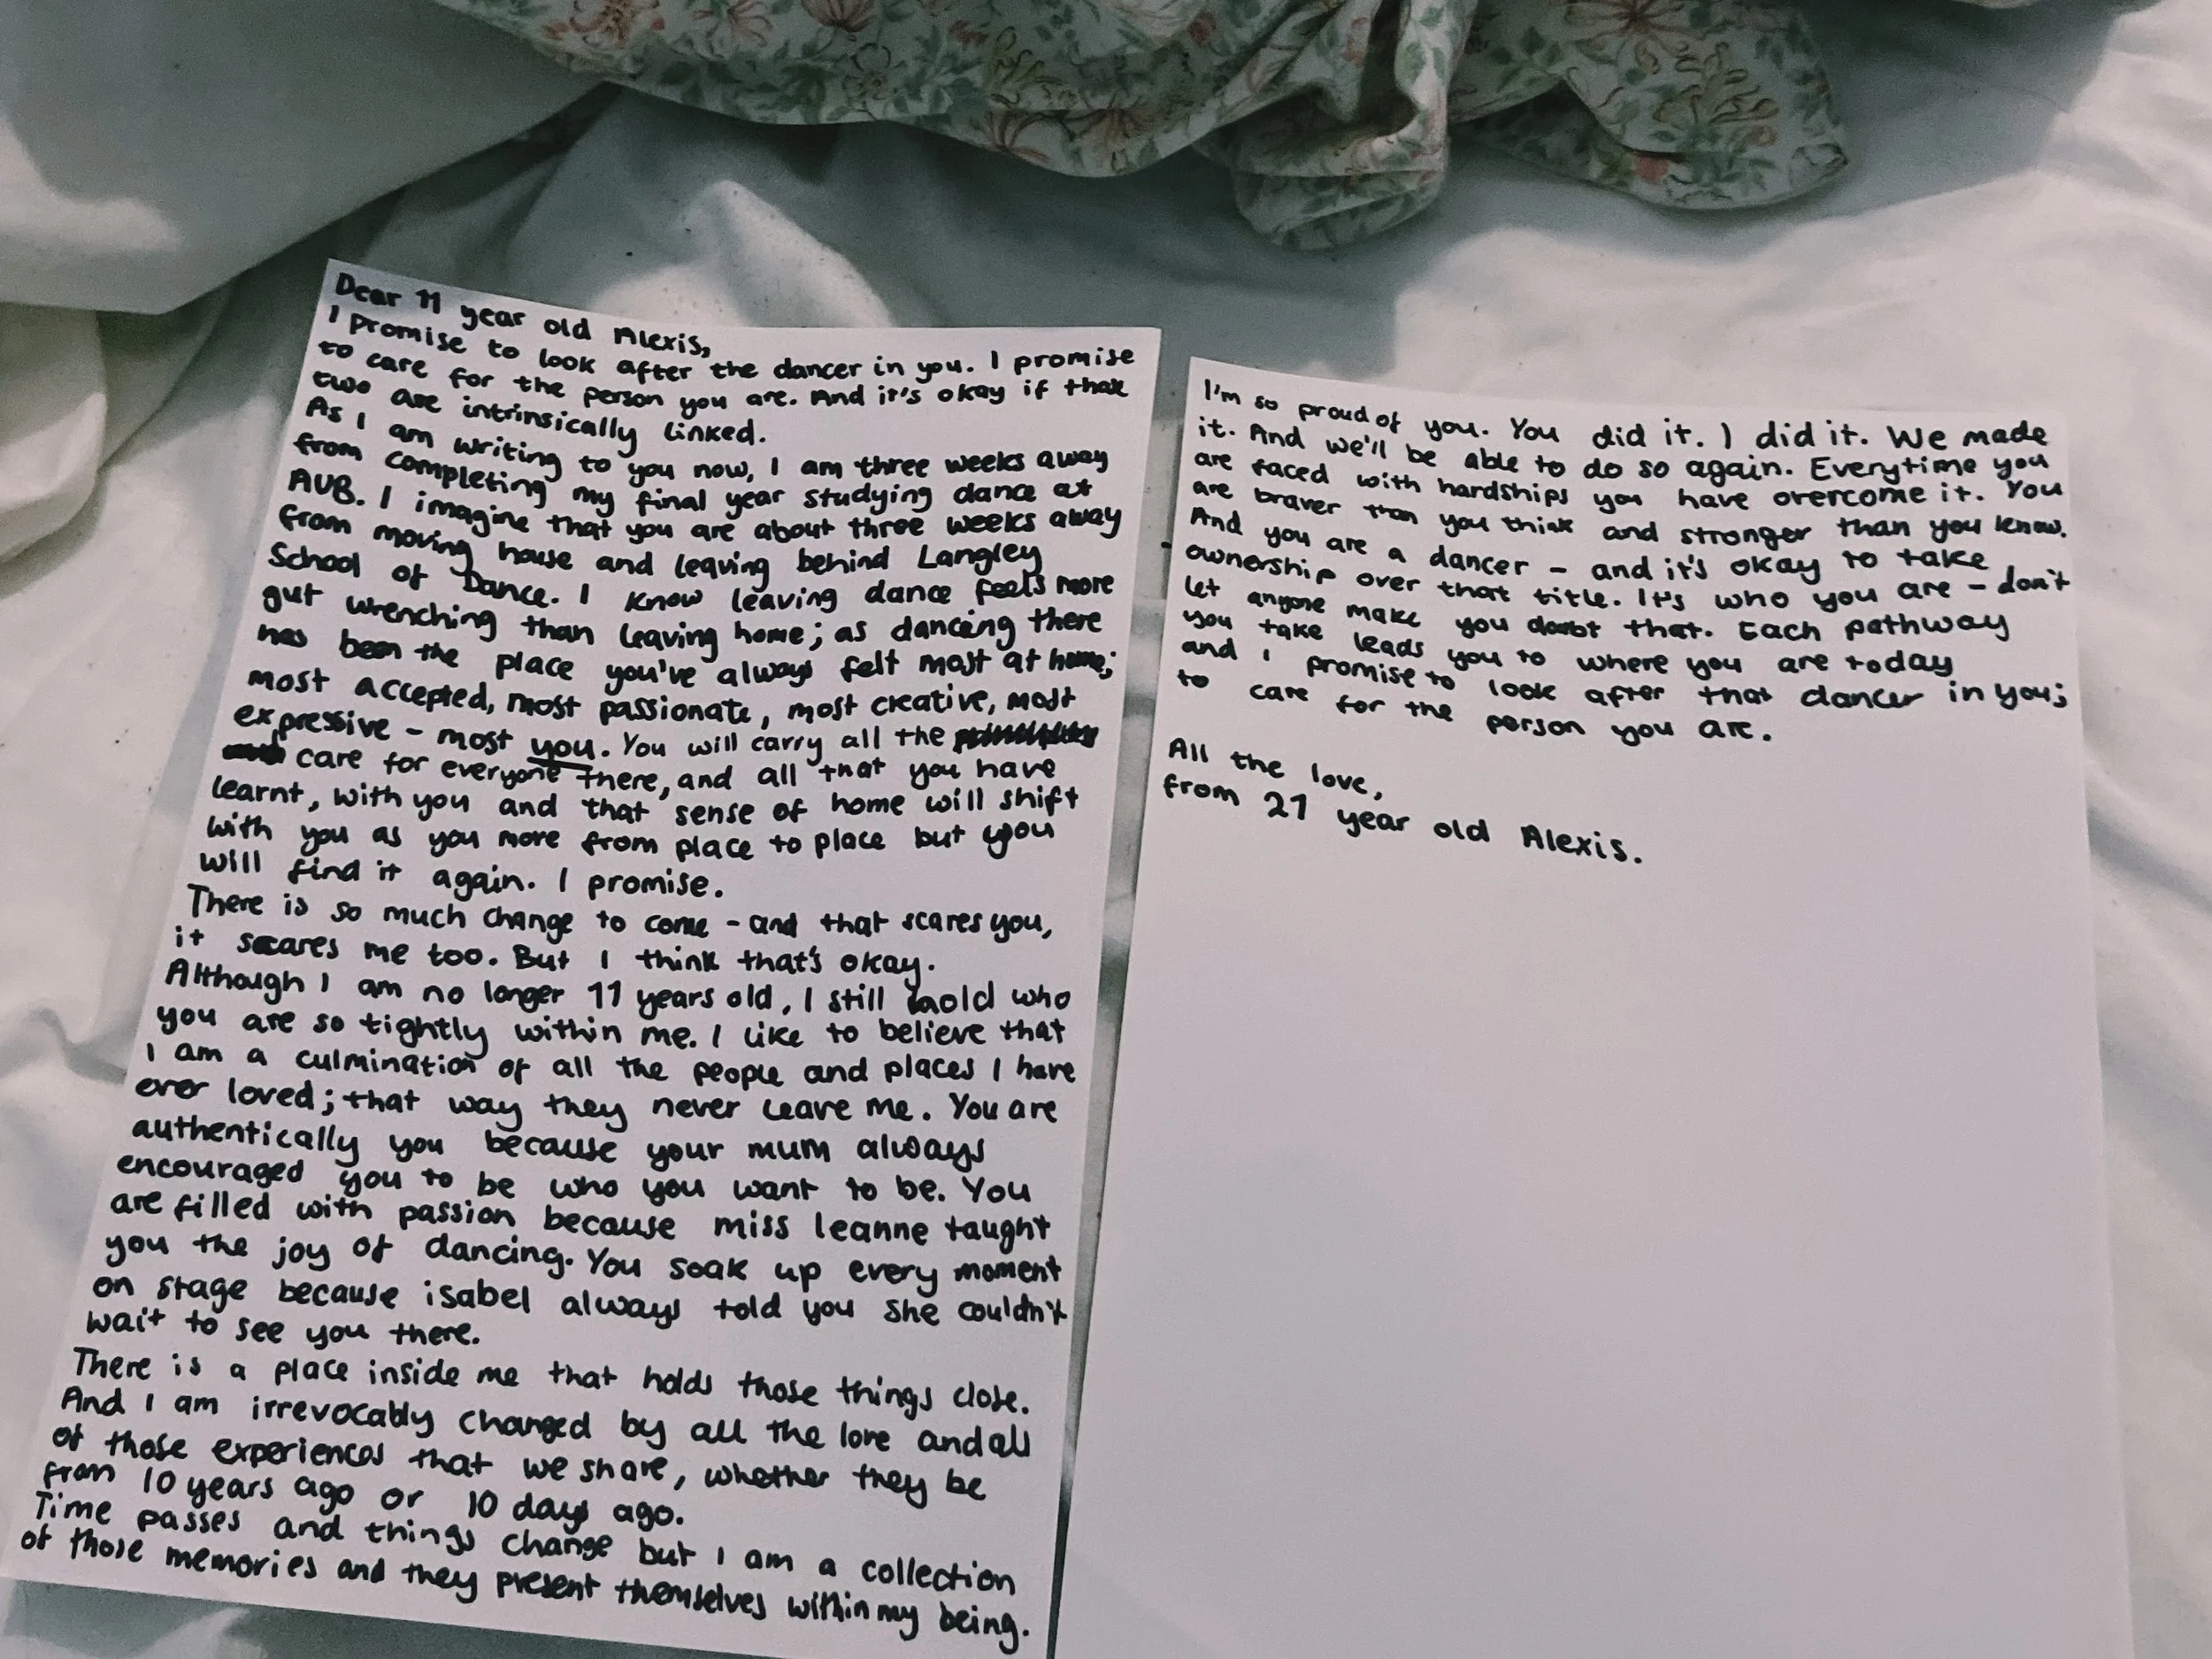 Dear 11 year old Alexis,
I promise to look after the dancer in you. I promise
to care for the person you are. And it's okay if that
two are intrinsically linked.
As I am writing to you now, I am three weeks away
from completing my final year studying dance at
AUB. I imagine that you are about three weeks away
from moving house and leaving behind Langley
School of Dance. I know leaving dance feels more
gut wrenching than leaving home; as dancing there
has been the place you've always felt most at home;
most accepted, most passionate, most creative, most
expressive - most you. You will carry all the
care for everyone there, and all that you have
learnt, with you and that sense of home will shift
with you as you move from place to place but you
will find it again. I promise.
There is so much change to come - and that scares you,
it scares me too. But I think that's okay.
Although I am no longer 11 years old, I still hold who
you are so tightly within me. I like to believe that
I am a culmination of all the people and places I have
ever loved; that way they never leave me. You are
authentically you because your mum always
encouraged you to be who you want to be. You
are filled with passion because miss leanne taught
you the joy of dancing. You soak up every moment
on stage because isabel always told you she couldn't
wait to see you there.
There is a place inside me that holds those things close.
And I am irrevocably changed by all the love and all
of those experiences that we share, whether they be
from 10 years ago or 10 days ago.
Time passes and things change but I am a collection
of those memories and they present themselves within my being.
I'm so proud of you. You did it. I did it. We made
it. And we'll be able to do so again. Everytime you
are faced with hardships you have overcome it. You
are braver than you think and stronger than you know.
And you are a dancer - and it's okay to take
ownership over that title. It's who you are - don't
let anyone make you doubt that. Each pathway
you take leads you to where you are today
and I promise to look after that dancer in you;
to care for the person you are.
All the love,
from 21 year old Alexis.